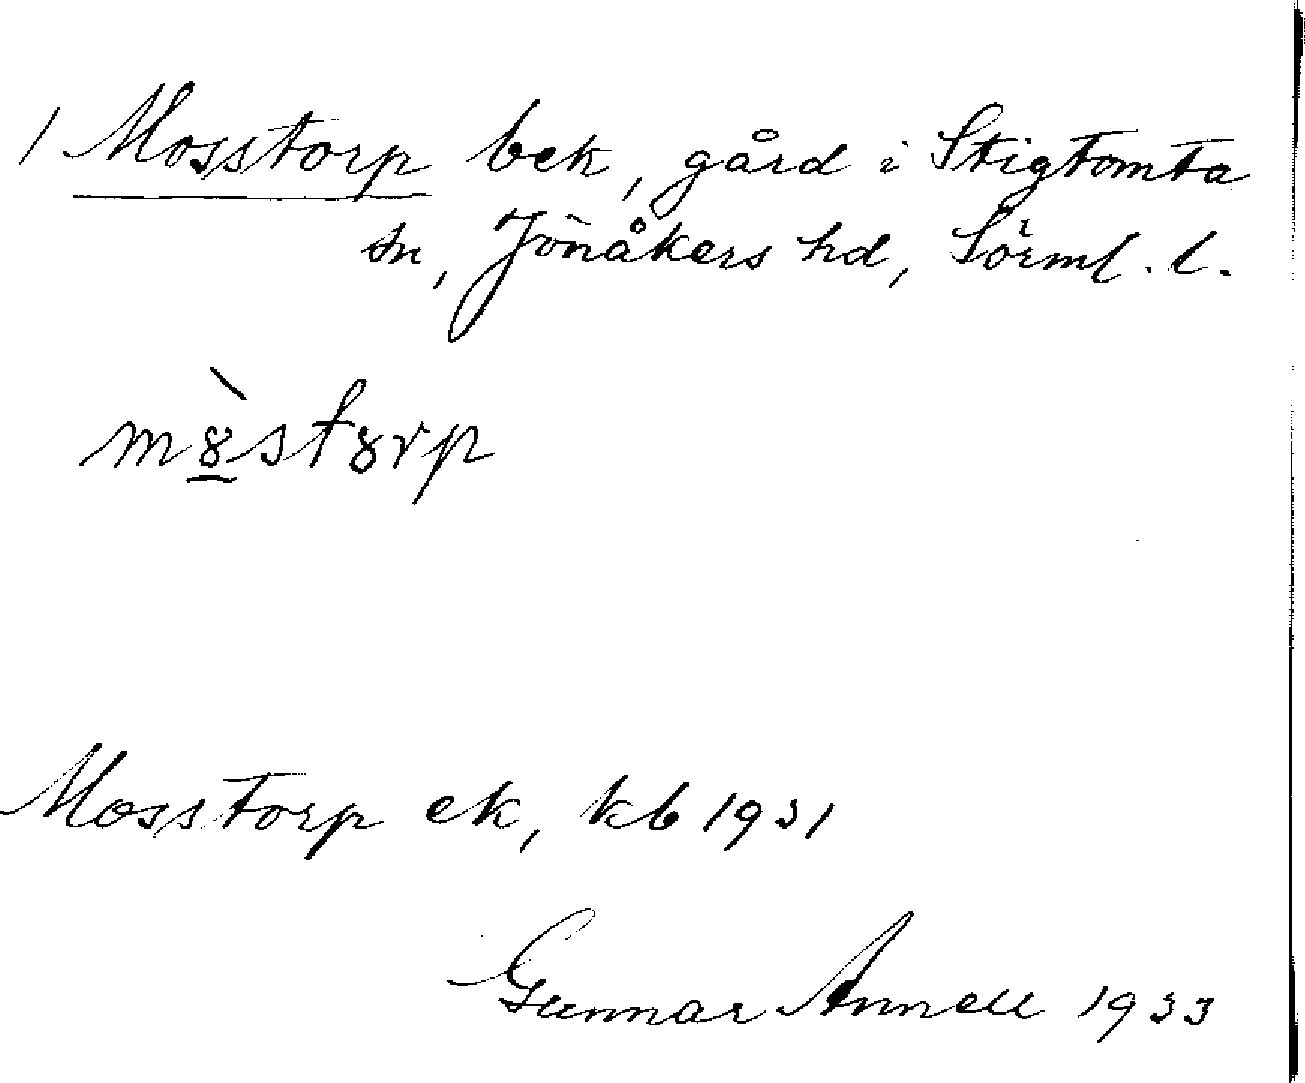 / Mosstorp bek, gård i Stigtomta
sn, Jönåkers hd, Sörml. l.
m8̲̀st8rp
Mosstorp ek, kb 1931
Gunnar Annell 1933